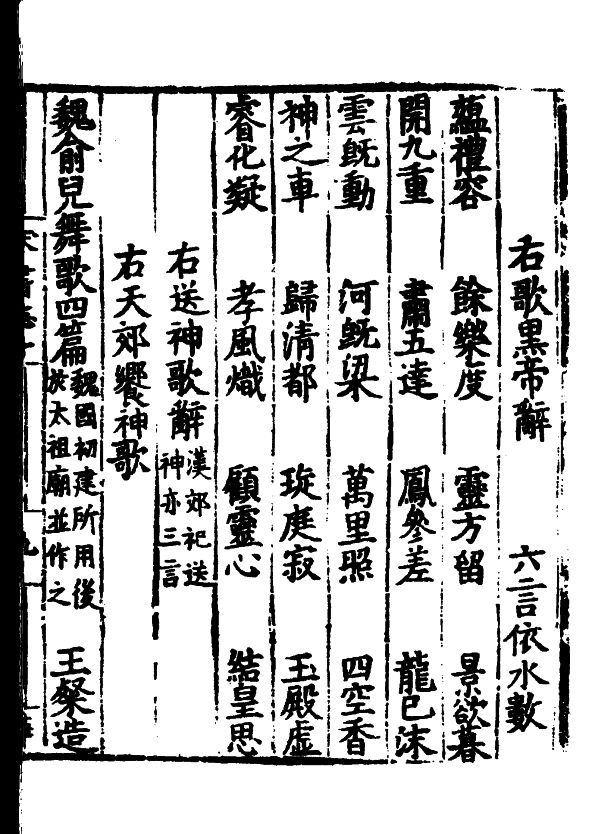 右歌黑帝辭　六言依水數
蘊禮容　餘樂度　靈方留　景欲暮
開九重　肅五達　鳳參差　龍已沫
雲既動　河既梁　萬里照　四空香
神之車　歸清都　琁庭寂　玉殿虛
睿化凝　孝風熾　顧靈心　結皇思
右送神歌辭　漢郊祀送神亦三言
右天郊饗神歌
魏俞兒舞歌四篇　魏國初建所用後於太祖廟並作之　王粲造